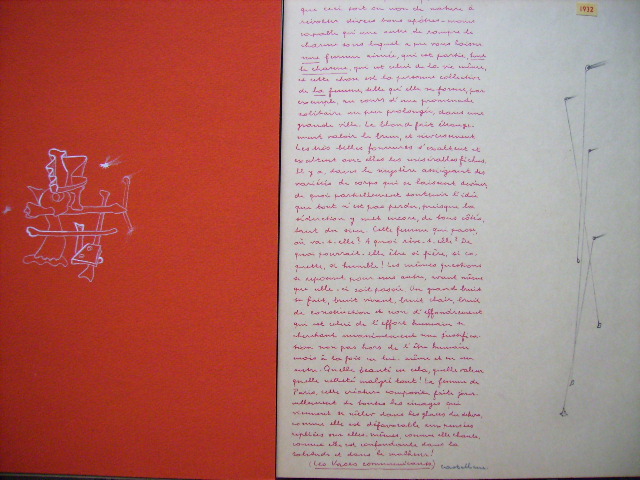 que ceci soit ou non de nature à
révolter divers bons apôtres – moins
capable qu'une autre de rompre le
charme sous lequel a pu vous laisser
une femme aimée, qui est partie, tout
le charme, qui est celui de la vie même,
si cette chose est la personne collective
de la femme, telle qu'elle se forme, par
exemple, au cours d'une promenade
solitaire un peu prolongée, dans une
grande ville. Le blond fait étrange-
ment valoir le brun, et inversement.
Les très belles fourrures s'exaltent et
exaltent avec elles les misérables fichus.
Il y a, dans le mystère assignant des
variétés de corps qui se laissent deviner,
de quoi partiellement soutenir l'idée
que tout n'est pas perdu, puisque la
séduction y met encore, de tous côtés,
tant du sien. Cette femme qui passe,
où va-t-elle? À quoi rêve-t-elle? De
quoi pourrait-elle être si fière, si co-
quette, si humble? Les mêmes questions
se reposent pour une autre, avant même
que celle-ci soit passée. Un grand bruit
se fait, bruit vivant, bruit clair, bruit
de construction et non d'effondrement
qui est celui de l'effort humain se
cherchant unanimement une justifica-
tion non pas hors de l'être humain
mais à la fois en lui-même et en un
autre. Quelle beauté en cela, quelle valeur
quelle netteté malgré tout! La femme de
Paris, cette créature composite faite jour-
nellement de toutes les images qui
viennent se mirer dans les glaces du dehors,
comme elle est défavorable aux pensées
repliées sur elles-mêmes, comme elle chante,
comme elle est confondante dans la
solitude et dans le malheur!
(Les Vases communicants)
1932